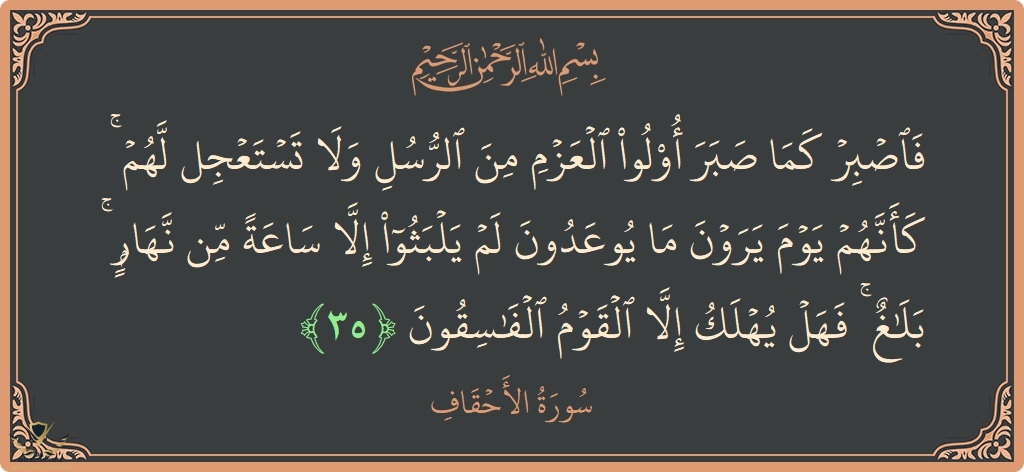 بِسْمِ اللهِ الرَّحْمٰنِ الرَّحِيْمِ
فَٱصۡبِرۡ كَمَا صَبَرَ أُوْلُواْ ٱلۡعَزۡمِ مِنَ ٱلرُّسُلِ وَلَا تَسۡتَعۡجِل لَّهُمۡۚ
كَأَنَّهُمۡ يَوۡمَ يَرَوۡنَ مَا يُوعَدُونَ لَمۡ يَلۡبَثُوٓاْ إِلَّا سَاعَةٗ مِّن نَّهَارِۭۚ
بَلَٰغٞۚ فَهَلۡ يُهۡلَكُ إِلَّا ٱلۡقَوۡمُ ٱلۡفَٰسِقُونَ ﴿٣٥﴾
سُورَةُ الأَحۡقَافِ